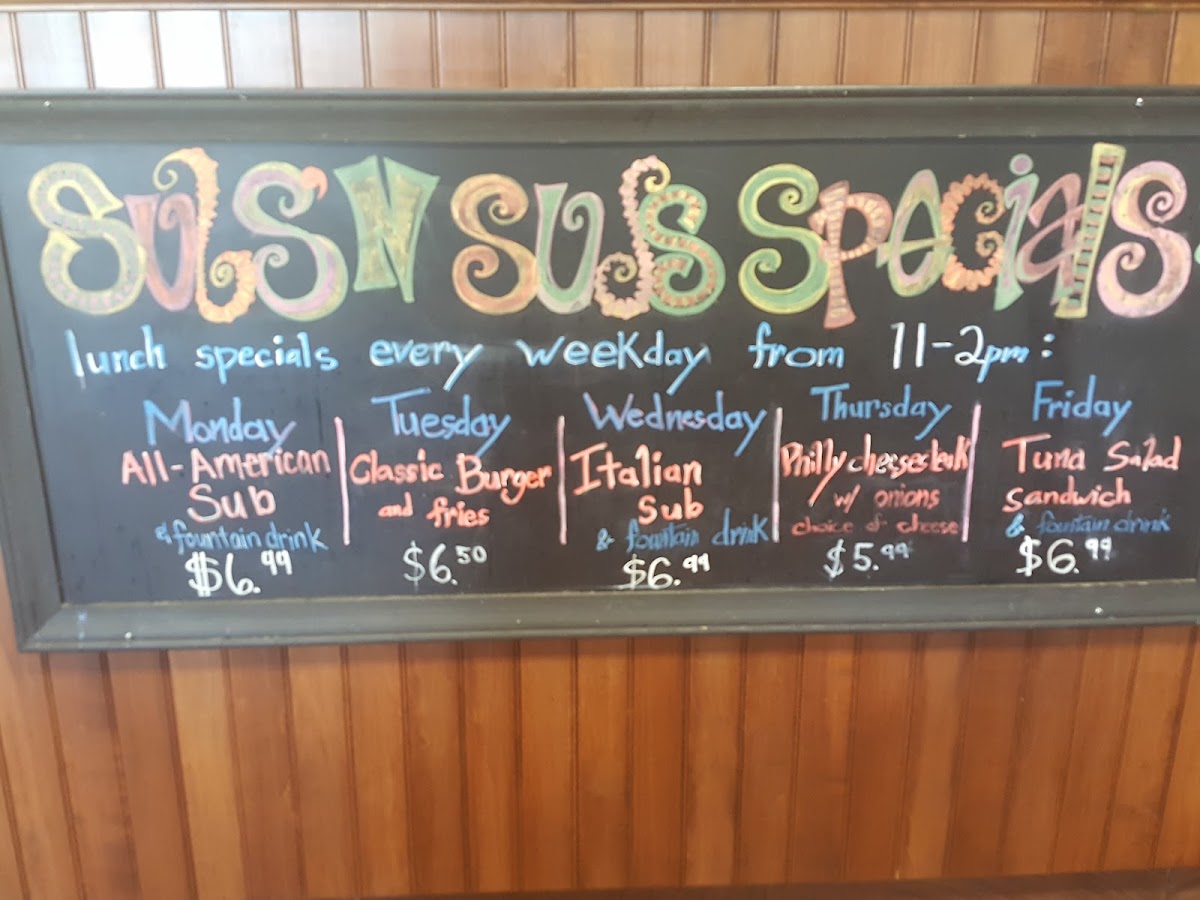 SuBS'N SuDS SpeciaLS
lunch specials every weekday from 11-2pm:
Monday
All-American
Sub
& fountain drink
$6.99
Tuesday
Classic Burger
and fries
$6.50
Wednesday
Italian
Sub
& fountain drink
$6.99
Thursday
Philly cheesesteak
w/ onions
choice of cheese
$5.99
Friday
Tuna Salad
Sandwich
& fountain drink
$6.99